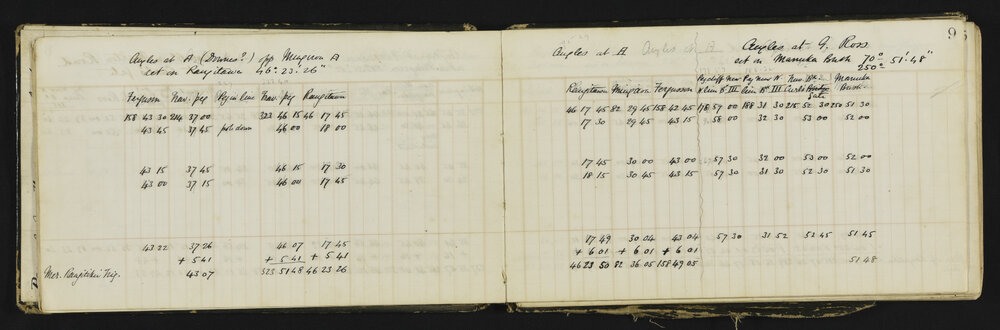 Angles at A (Downes?) opp Mingaroa A
set on Rangitawa 46° 23' 26"
Ferguson Trav. peg Trav. peg Rangitawa
158 43 30 214 37 00 323 46 15 46 17 45
43 45 37 45 pole down 46 00 18 00
43 15 37 45 46 15 17 30
43 00 37 15 46 00 17 45
43 22 37 26 46 07 17 45
+ 5 41 + 5 41 + 5 41
Mer. Rangitikei Trig. 43 07 323 51 48 46 23 26
9
Angles at A Angles at A
Rangitawa Ferguson
46 17 45 82 29 45 158 42 45
17 30 29 45 43 15
17 45 30 00 43 00
18 15 30 45 43 15
17 49 30 04 43 04
+ 6 01 + 6 01 + 6 01
46 23 50 82 36 05 158 49 05
Angles at G. Ross
set on Manuka Bush 70° 51' 48"
250°
Manuka
Bush
178 57 00 188 31 30 215 52 30 250 51 30
58 00 32 30 53 00 52 00
57 30 32 00 53 00 52 00
57 30 31 30 52 30 51 30
57 30 31 52 52 45 51 45
51 48